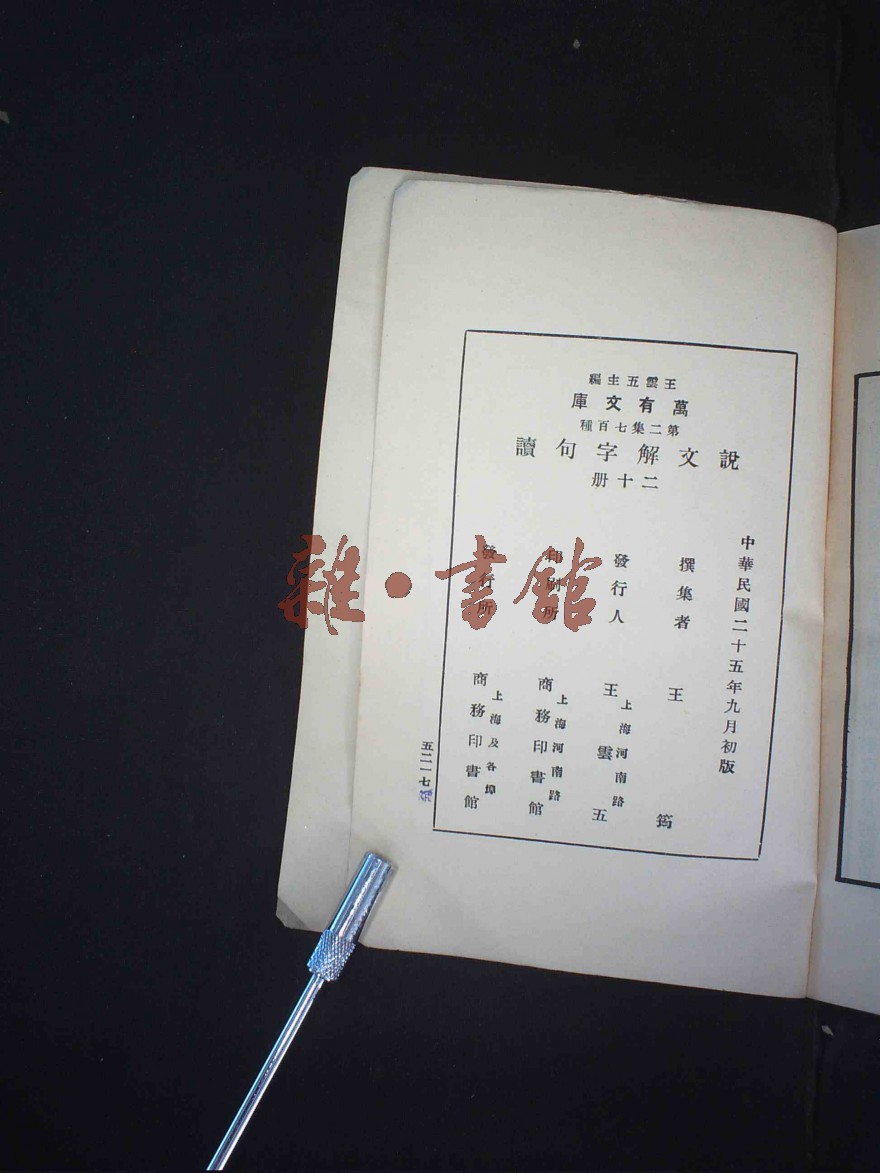 王雲五主編
萬有文庫
第二集七百種
說文解字句讀
二十册
中華民國二十五年九月初版
撰集者 王筠
發行人 王雲五
上海河南路
印刷所 商務印書館
上海河南路
發行所 商務印書館
上海及各埠
五二一七
雜·書館